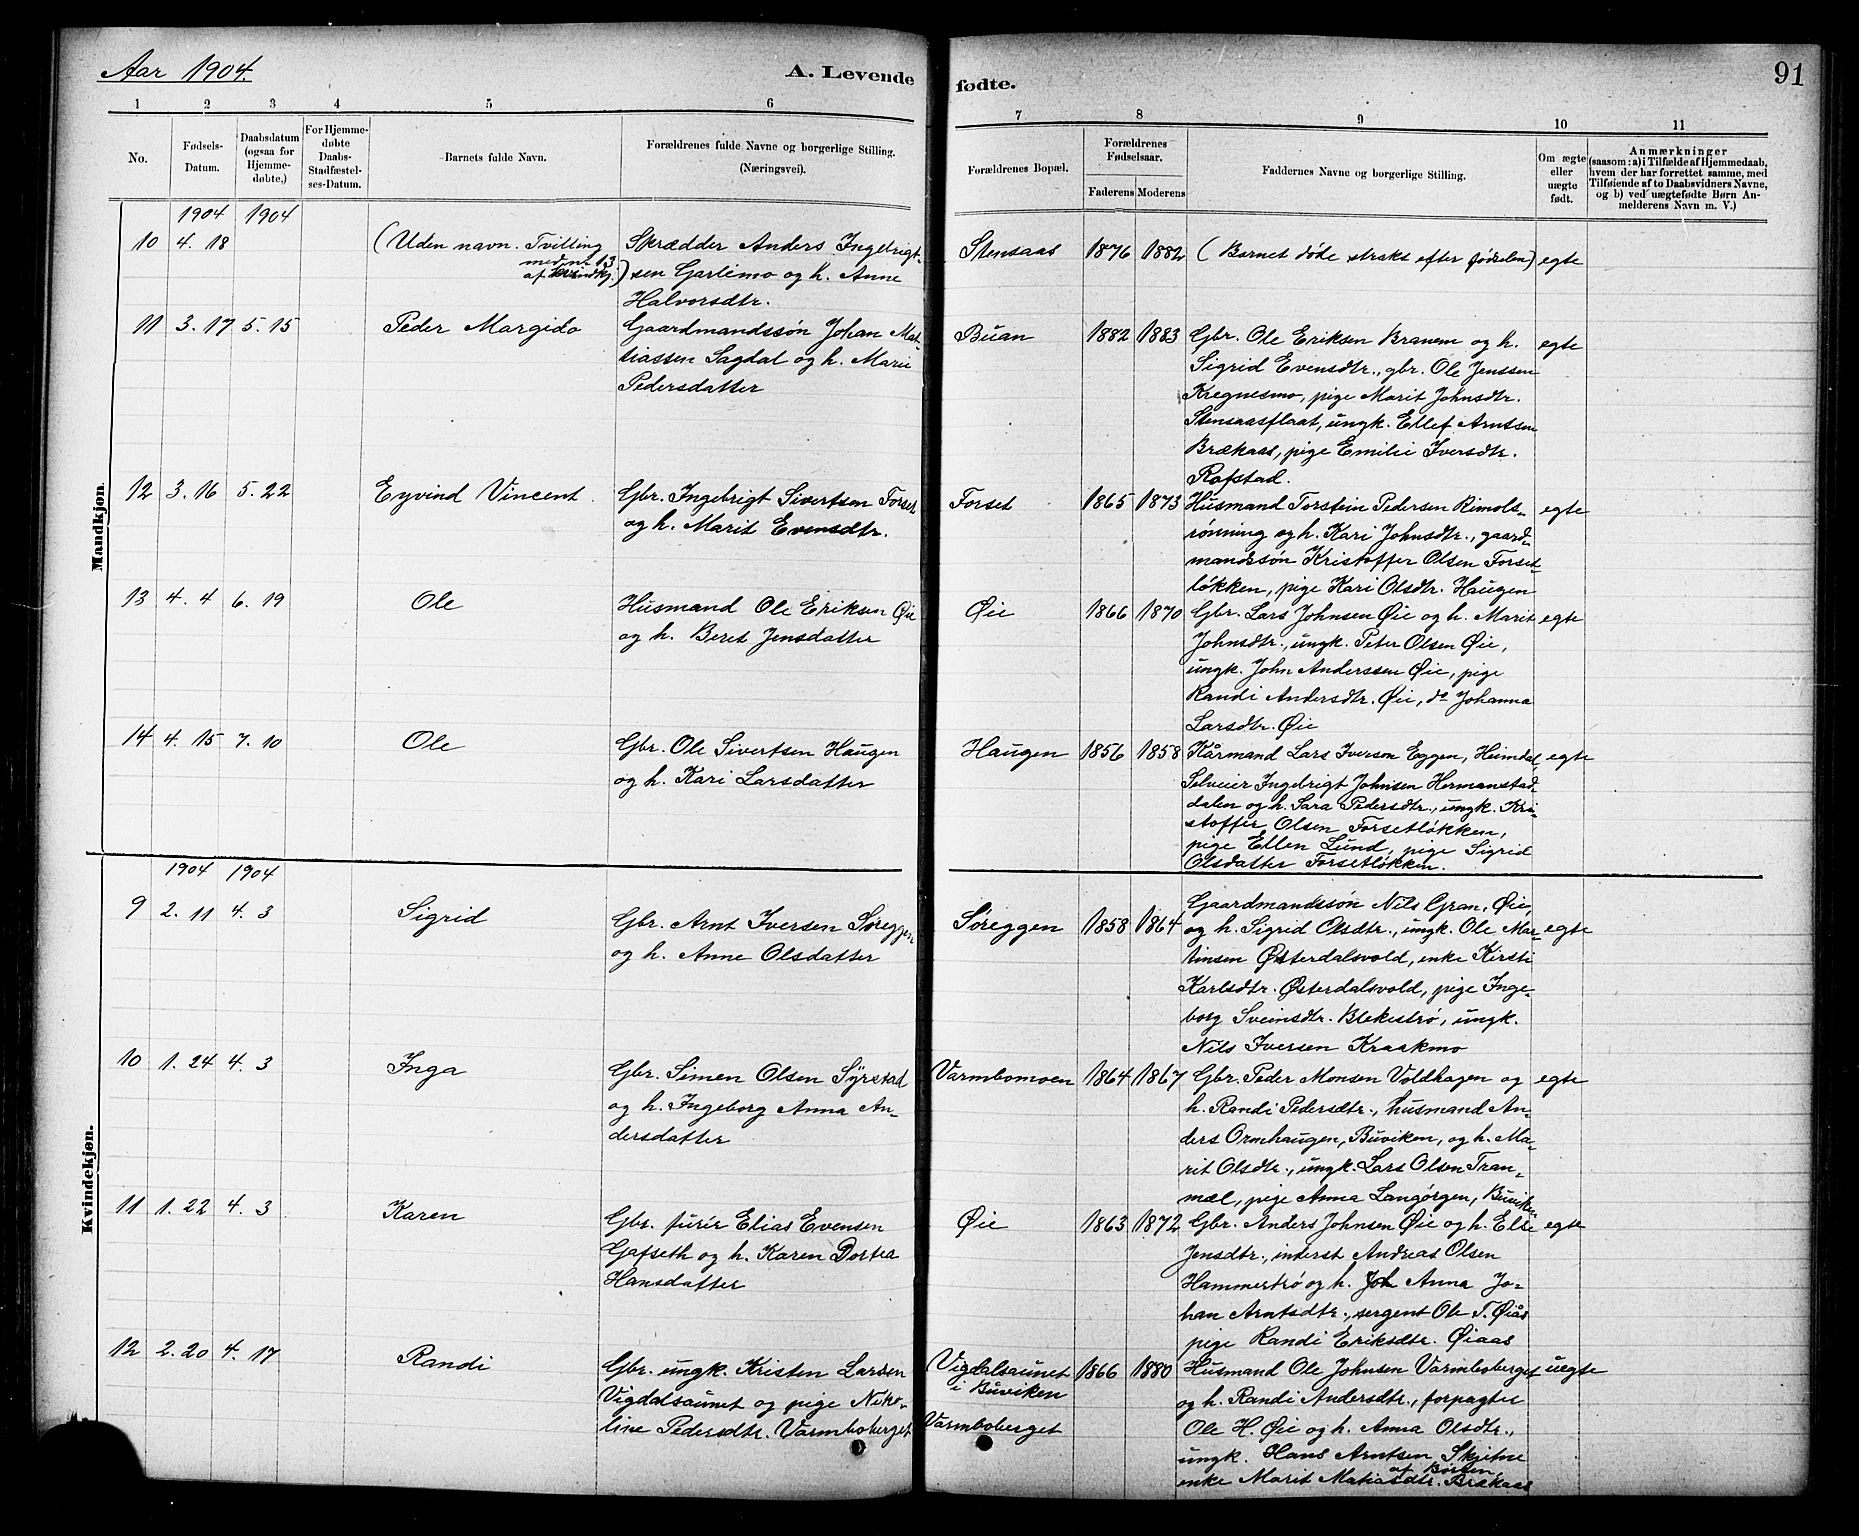 Aar 1904.
A. Levende
fødte.
91
1 2 3 4 5 6
7 8 9 10 11
No.
Fødsels-
Datum.
Daabsdatum
(ogsaa for
Hjemme-
døbte.)
For Hjemme-
døbte
Daabs-
Stadfæstel-
ses-Datum.
Barnets fulde Navn.
Forældrenes fulde Navne og borgerlige Stilling.
(Næringsvei).
Forældrenes Bopæl.
Forældrenes
Fødselsaar.
Faderens Moderens
Faddernes Navne og borgerlige Stilling.
Om ægte
eller
uægte
født.
Anmærkninger
(saasom: a) i Tilfælde af Hjemmedaab,
hvem der har forrettet samme, med
Tilføiende af to Daabsvidners Navne,
og b) ved uægtefødte Børn An-
melderens Navn m. V.)
Mandkjøn.
1904 1904
10 4. 18
(Uden navn. Tvilling
med nr. 13
af kvindkj.)
Skrædder Anders Ingebrigt-
sen Garlimo og h. Anne
Halvorsdtr.
Stensaas 1876 1882 (Barnet døde straks efter fødselen) egte
11 3. 17 5. 15 Peder Margido
Gaardmandssøn Johan Mat-
tiassen Sagdal og h. Marie
Pedersdatter
Buan 1882 1883
Gbr. Ole Eriksen Branem og h.
Sigrid Evensdtr., gbr. Ole Jenssen
Kregnesmo, pige Marit Johnsdtr.
Stensaasflaat, ungk. Ellef Arntsen
Brækaas, pige Emilie Iversdtr.
Rofstad.
egte
12 3. 16 5. 22 Eyvind Vincent.
Gbr. Ingebrigt Sivertsen Forset
og h. Marit Evensdtr.
Forset 1865 1873
Husmand Torstein Pedersen Rimols-
rønning og h. Kari Johnsdtr., gaard-
mandssøn Kristoffer Olsen Forset-
løkken, pige Kari Olsdtr. Haugen
egte
13 4. 4 6. 19 Ole
Husmand Ole Eriksen Øie
og h. Beret Jensdatter
Øie 1866 1870
Gbr. Lars Johnsen Øie og h. Marit
Johnsdtr., ungk. Peter Olsen Øie,
ungk. John Anderssen Øie, pige
Randi Andersdtr. Øie, do Johanna
Larsdtr. Øie
egte
14 4. 15 7. 10 Ole
Gbr. Ole Sivertsen Haugen
og h. Kari Larsdatter
Haugen 1856 1858
Kårmand Lars Iversen Eggen, Heimdal,
Selveier Ingebrigt Johnsen Hermanstad
dalen og h. Sara Pedersdtr., ungk. Kri-
stoffer Olsen Forsetløkken,
pige Ellen Lund, pige Sigrid
Olsdatter Forsetløkken.
egte
Kvindekjøn.
1904 1904
9 2. 11 4. 3 Sigrid
Gbr. Arnt Iversen Søreggen
og h. Anne Olsdatter
Søreggen 1858 1864
Gaardmandssøn Nils Gran, Øie,
og h. Sigrid Olsdtr., ungk. Ole Mar-
tinsen Østerdalsvold, enke Kirsti
Karlsdtr. Østerdalsvold, pige Inge-
borg Sveinsdtr. Blekestrø, ungk.
Nils Iversen Kraakmo
egte
10 1. 24 4. 3 Inga
Gbr. Simen Olsen Syrstad
og h. Ingeborg Anna An-
dersdatter
Varmbomoen 1864 1867
Gbr. Peder Monsen Voldhagen og
h. Randi Pedersdtr., husmand An-
ders Ormhaugen, Buviken, og h. Ma-
rit Olsdtr., ungk. Lars Olsen Tran-
mæl, pige Anna Langørgen, Buviken
egte
11 1. 22 4. 3 Karen
Gbr. furér Elias Evensen
Gafseth og h. Karen Dortea
Hansdatter
Øie 1863 1872
Gbr. Anders Johnsen Øie og h. Else
Jensdtr., inderst Andreas Olsen
Hammertrø og h. Anna Jo-
han Arntsdtr., sergent Ole T. Øiås
pige Randi Eriksdtr. Øiaas
egte
12 2. 20 4. 17 Randi
Gbr. ungk. Kristen Larsen
Vigdalsaunet og pige Niko-
line Pedersdtr. Varmboberget
Vigdalsaunet
i Buviken
Varmboberget
1866 1880
Husmand Ole Johnsen Varmboberget
og h. Randi Andersdtr., forpagter
Ole H. Øie og h. Anna Olsdtr.,
ungk. Hans Arntsen Skjetne
af Børsen,
enke Marit Matiasdtr. Brækaas
uegte